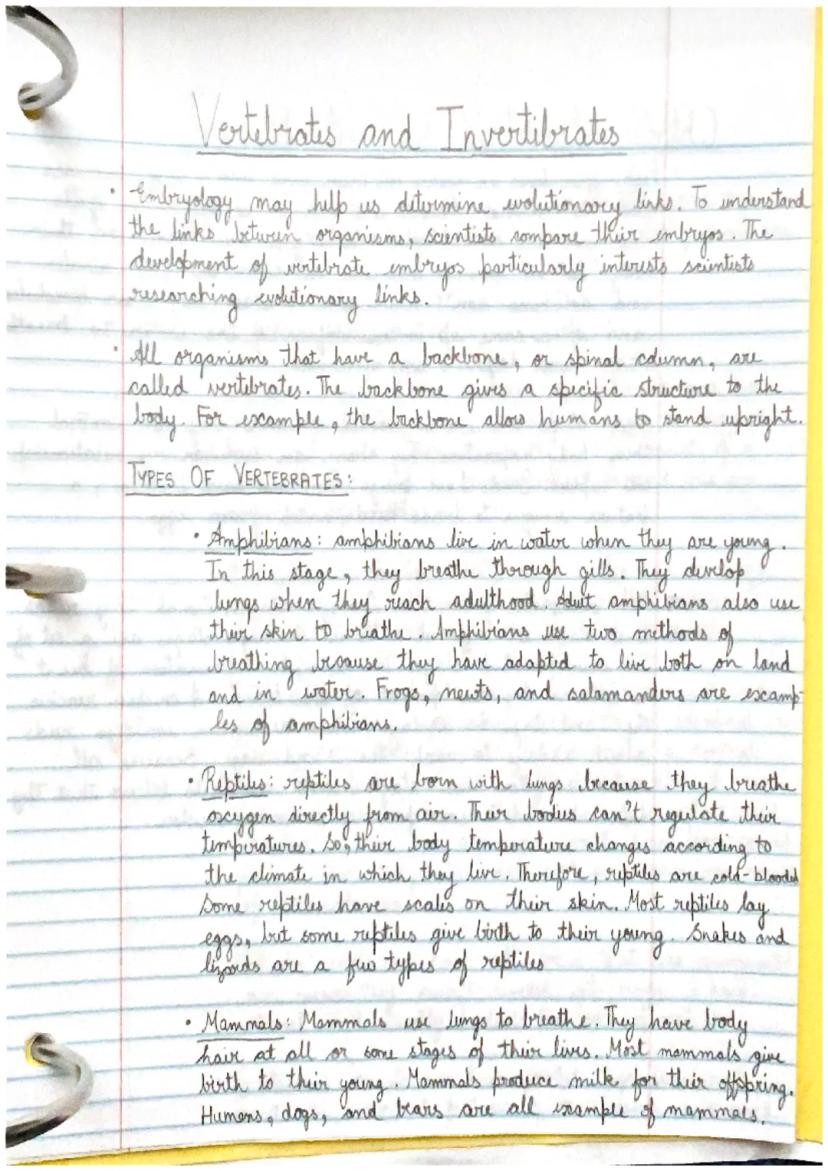 Vertebrates and Invertibrates
• Embryology may help us determine evolutionary links. To understand
the links between organisms, scientists compare their embryos. The
development of vertebrate embryos particularly interests scientists
researching evolutionary links.
• All organisms that have a backbone, or spinal column, are
called vertebrates. The backbone gives a specific structure to the
body. For example, the backbone allows humans to stand upright.
TYPES OF VERTEBRATES:
• Amphibians: amphibians live in water when they are young.
In this stage, they breathe through gills. They develop
lungs when they reach adulthood. Adult amphibians also use
their skin to breathe. Amphibians use two methods of
breathing because they have adapted to live both on land
and in water. Frogs, newts, and salamanders are examp-
les of amphibians.
• Reptiles: reptiles are born with lungs because they breathe
oxygen directly from air. Their bodies can't regulate their
temperatures. So, their body temperature changes according to
the climate in which they live. Therefore, reptiles are cold-blooded
Some reptiles have scales on their skin. Most reptiles lay
eggs, but some reptiles give birth to their young. Snakes and
lizards are a few types of reptiles
• Mammals: Mammals use lungs to breathe. They have body
hair at all or some stages of their lives. Most mammals give
birth to their young. Mammals produce milk for their offpring.
Humans, dogs, and bears are all example of mammals.